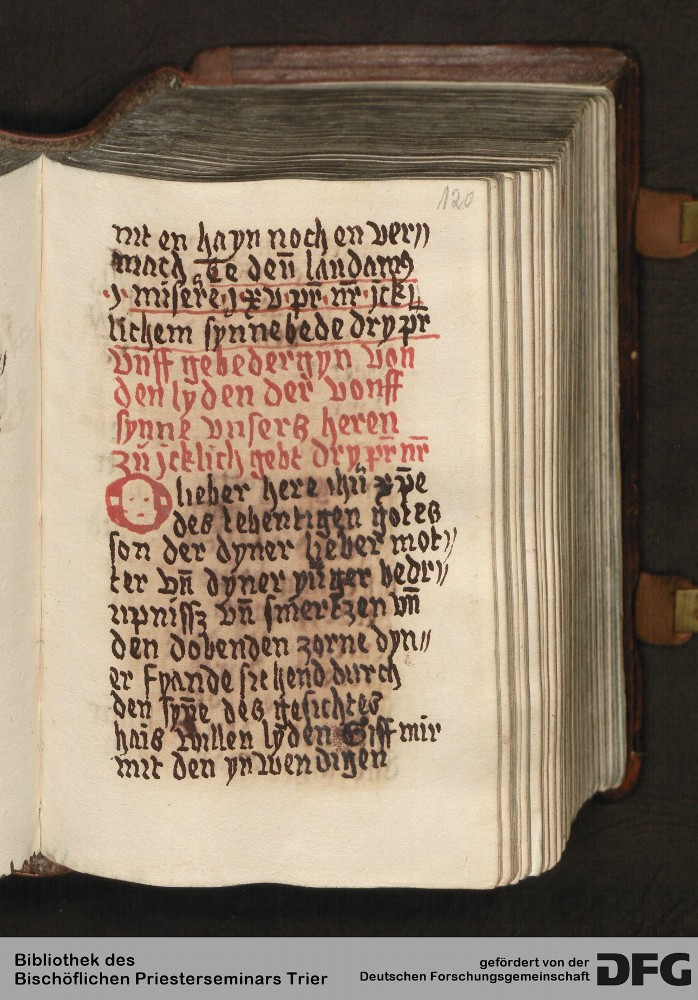 120
nit en hayn noch en ver//
mach Te deū laudamꝰ
·j· misere j xv pr̄ nr̄ jckl
lichem synne bede dry pr̄
vnff gebedergyn von
den lyden der vonff
synne vnsers heren
zū jcklich gebt dry pr̄ nr̄
O lieber here ihū xp̄e
des lebentigen gotes
son der dyner lieber mot//
ter vn̄ dyner yūger bedr//
upnissz vn̄ smertzen vn̄
den dobenden zorne dyn//
er fyande siehend durch
den syn̄e des gesichtes
hais willen lyden Giff mir
mit den ynwendigen
Bibliothek des
Bischöflichen Priesterseminars Trier
gefördert von der
Deutschen Forschungsgemeinschaft DFG